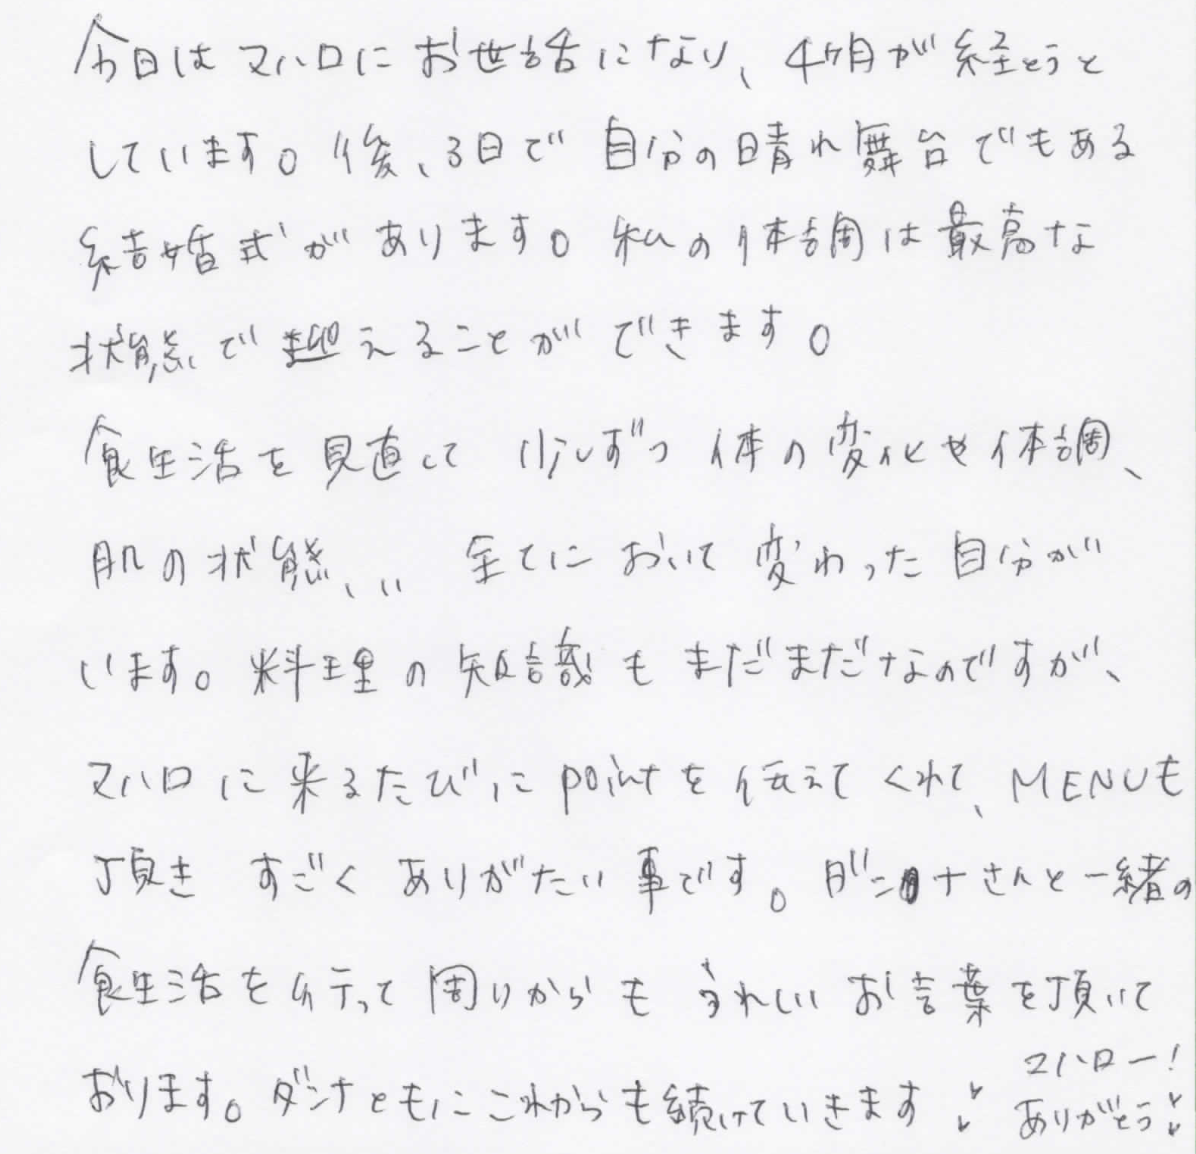 今日はマハロにお世話になり、4ヶ月が経とうと
しています。後、3日で自分の晴れ舞台でもある
結婚式があります。私の体調は最高な
状態で迎えることができます。
食生活を見直して少しずつ体の変化や体調、
肌の状態、、、全てにおいて変わった自分が
います。料理の知識もまだまだなのですが、
マハロに来るたびにpointを伝えてくれて、MENUも
頂きすごくありがたい事です。ダンナさんと一緒の
食生活を行って周りからもうれしいお言葉を頂いて
おります。ダンナともにこれからも続けていきます
マハロー!
ありがとう